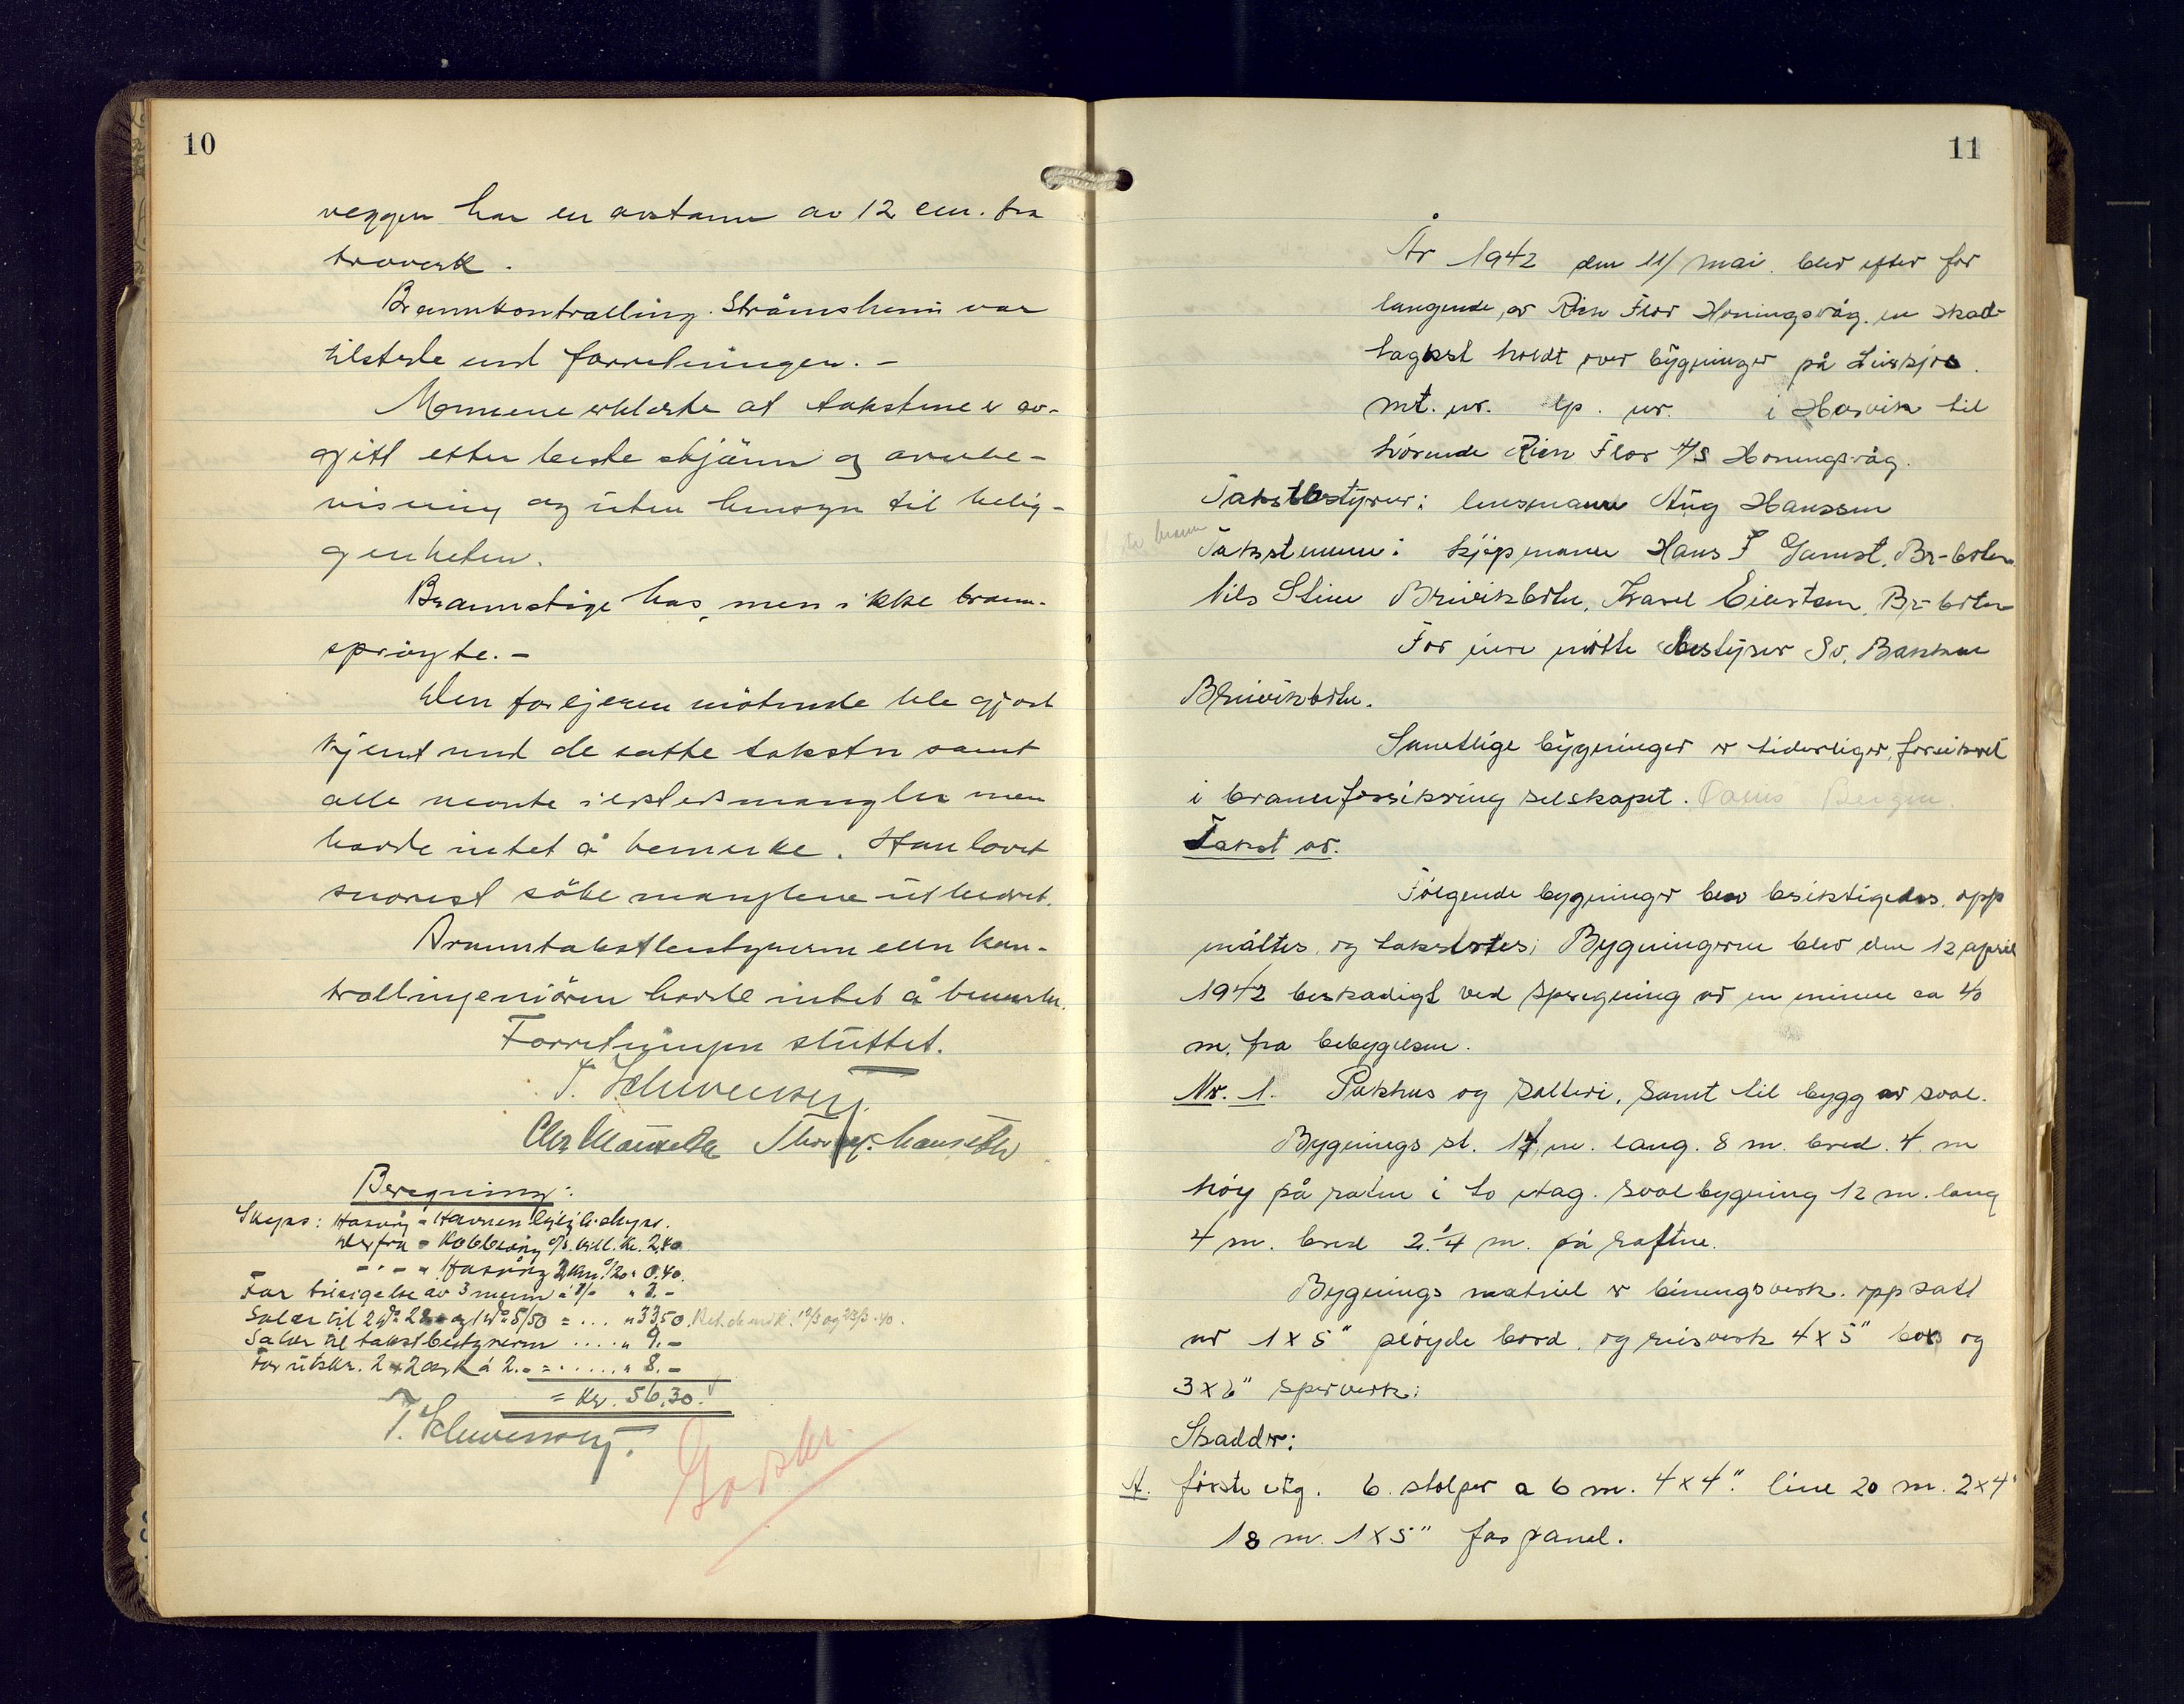 10
veggen har en avstann av 12 cm. fra
troverk.
Brannkontrolling. Strömsheim var
tilstede ved forretningen. -
Mennene erklerte at takstene er av-
gitt etter beste skjönn og overbe-
visning og uten hensyn til belig-
genheten.
Brannstige has, men ikke brann-
spröyte. -
Den for ejeren mötende ble gjort
kjent med de satte takster samt
alle nevnte mangler men
havde intet å bemerke. Han lovet
snarest söke manglene utbedret.
Branntakstbestyreren eller kon-
trollingeniören havde intet å bemerke.
Forretningen sluttet.
Beregning:
Skyss: Hasvåg - Havnen skyss.
Derfra - Kobbevåg Kr. 2.40
" - " Hasvåg 2 km. /20 " 0.40.
For tilsigelse av 3 menn á 1/- " 3.-
= ... " 33.50.
Salær til takstbestyreren .... " 9.-
For utskr. 2 x 2 ark á 2.- = ..... " 8.-
= Kr. 56.30.
11
År 1942 den 11/ mai. blev efter for
langende, av Rien Flor Honingsvåg. en skad-
tagkst holdt over bygninger på
mt. nr. lp. nr. i Hasvik til
hörende Rien Flor A/S Honingsvåg.
Takstbestyrer: lensmann Aug Hanssen
Takstmenn: kjöpmann Hans F Gamst, Br-botn
Nils Stine Breivikbotn, Br-botn
For eiere mötte bestyrer Sv. Bakken
Breivikbotn.
Samtlige bygninger er tiderliger forsikret
i brannforsikring selskapet. Bergen.
Takst av.
Fölgende bygninger blev besiktigedes, opp
måltes, og taksertes; Bygningerne blev den 12 april
1942 beskadigt ved spregning av en minne ca 40
m. fra bebygelsen.
Nr. 1. Pakhus og salteri, samt til bygg av sval.
Bygnings st. 14 m. lang. 8 m. bred. 4 m
höy på raten i to etag. svalbygning 12 m. lang
4 m. bred 2.¼ m. på raftne.
Bygnings matriel er binungsverk. opp satt
av 1 x 5" plöyde bord, og reisverk 4 x 5" og
3 x 6" sperverk:
Skadder:
A. förste etg. 6. stolper a 6 m. 4 x 4". line 20 m. 2 x 4"
18 m. 1 x 5" fas panel.